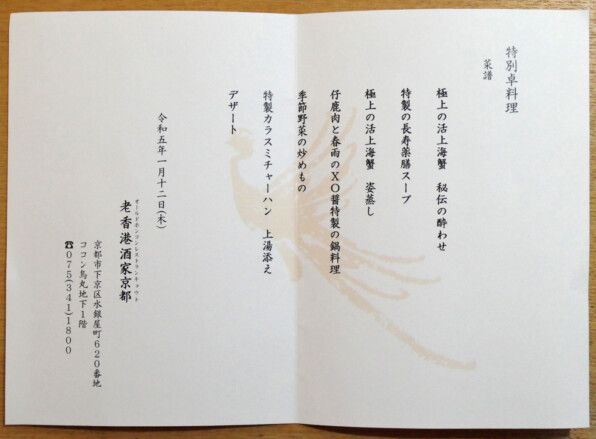 特別卓料理
菜譜
極上の活上海蟹　秘伝の酔わせ
特製の長寿薬膳スープ
極上の活上海蟹　姿蒸し
仔鹿肉と春雨のＸＯ醤特製の鍋料理
季節野菜の炒めもの
特製カラスミチャーハン　上湯添え
デザート
令和五年一月十二日(木)
オールドホンコンレストランキョウト
老香港酒家京都
京都市下京区水銀屋町６２０番地
ココン烏丸地下１階
☎０７５(３４１)１８００